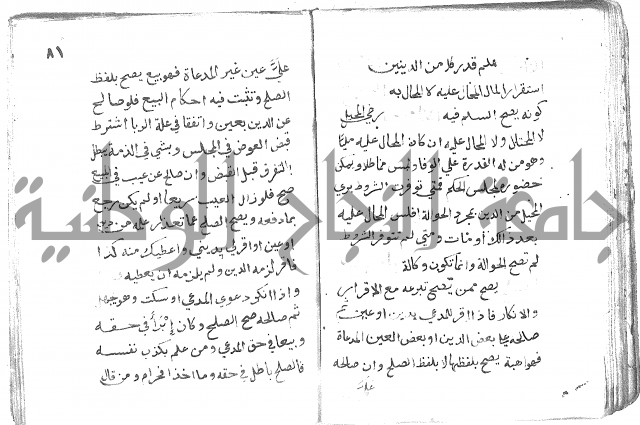 علم قدر كل من الدينين
استقرار المال المحال عليه لا المحال به
كونه يصح السلم فيه رضى المحيل
لا المحتال ولا المحال عليه ان كان المحال عليه مليا
وهو من له القدرة على الوفا وليس مماطلا ويمكن
حضوره لمجلس الحكم فمتى توفرت الشروط برى
المحيل من الدين بمجرد الحوالة افلس المحال عليه
بعد ذلك أو مات ومتى لم تتوفر الشروط
لم تصح الحوالة وانما تكون وكالة
يصح ممن يصح تبرعه مع الاقرار
والانكار فاذا اقر للمدعي بدين او عين ثم
صالحه على بعض الدين او بعض العين المدعاة
فهو هبة يصح بلفظها لا بلفظ الصلح وان صالحه
على
٨١
على عين غير المدعاة فهو بيع يصح بلفظ
الصلح وتثبت فيه احكام البيع فلو صالح
عن الدين بعين واتفقا في علة الربا اشترط
قبض العوض في المجلس وبشي في الذمة يبطل
بالتفرق قبل القبض وان صالح عن عيب في المبيع
صح فلو زال العيب سريعا او لم يكن رجع
بما دفعه ويصح الصلح عما تعذر علمه من دين
او عين او اقر لي بديني واعطيك منه كذا
فاقر لزمه الدين ولم يلزمه ان يعطيه
واذا انكر دعوى المدعي او سكت وهو يجهله
ثم صالحه صح الصلح وكان إبرأ في حقه
وبيعا في حق المدعي ومن علم بكذب نفسه
فالصلح باطل في حقه وما اخذ فحرام ومن قال
جامعة النجاح الوطنية